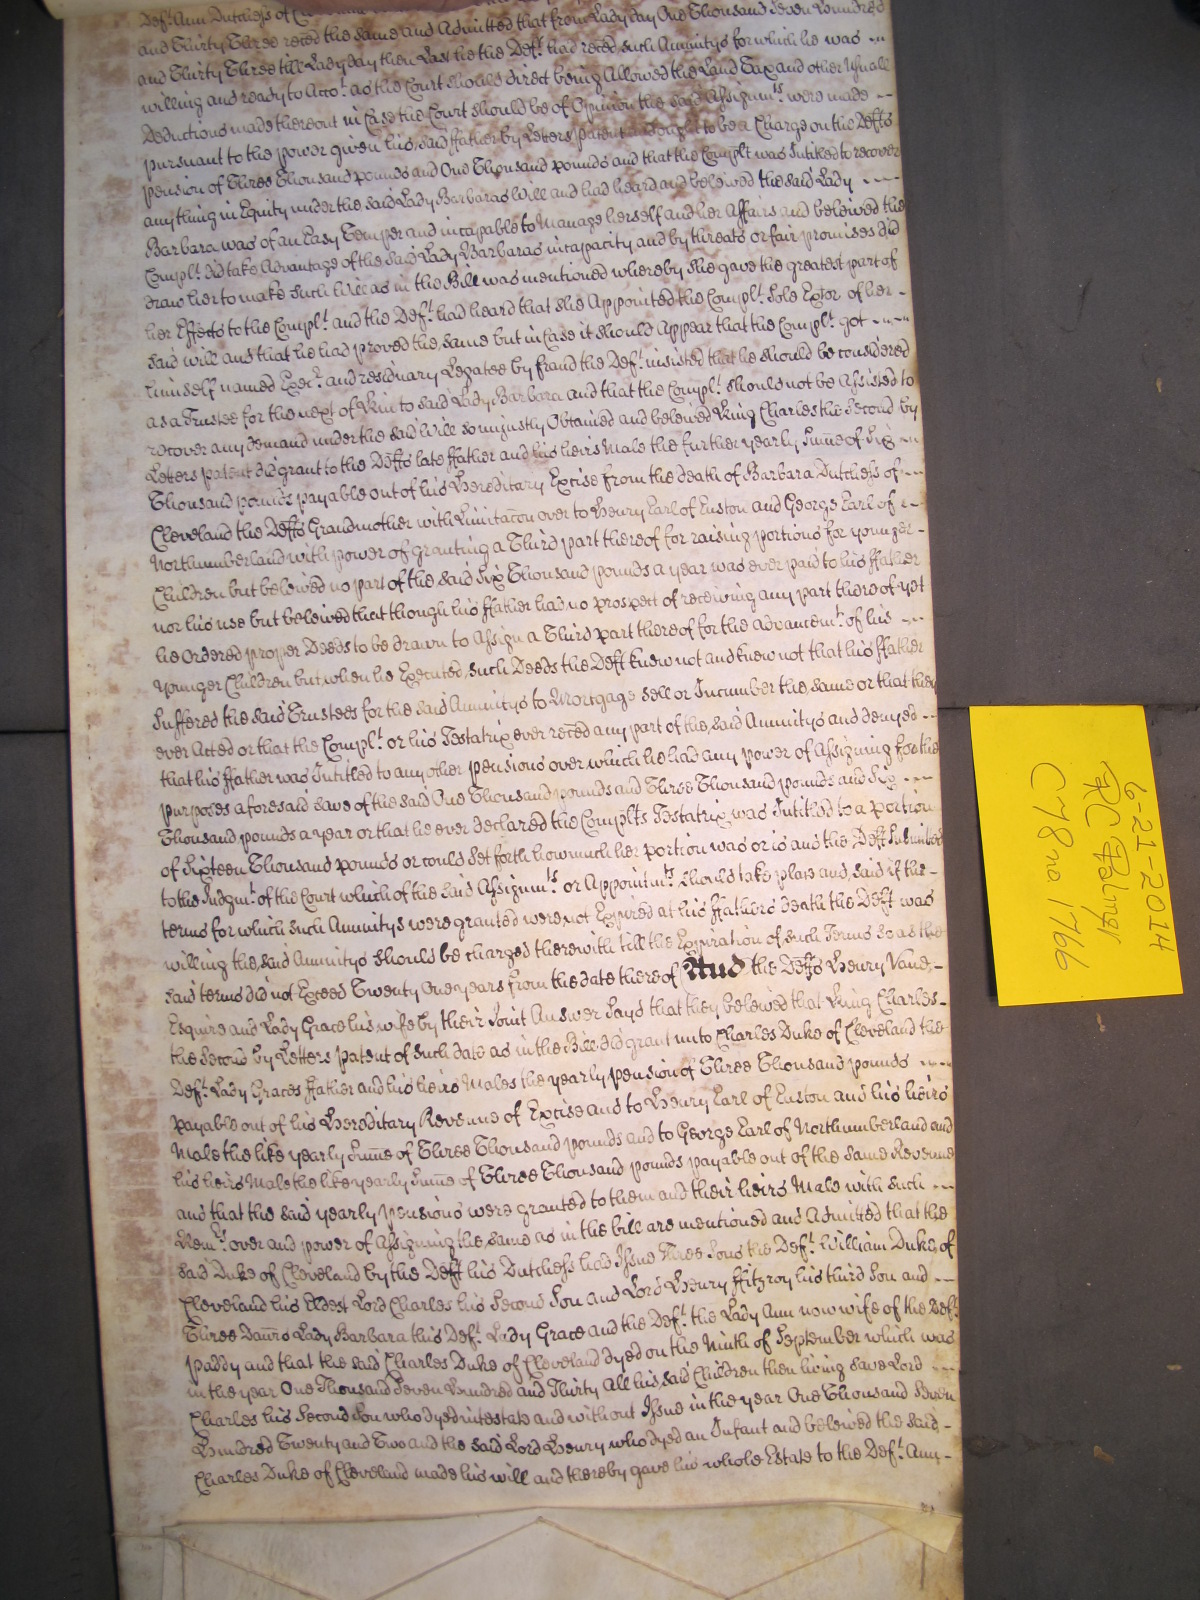 Def.t Ann Dutchess of
and Thirty Three reced the same and Admitted that from Lady day One Thousand Seven Hundred
and Thirty Three till Ladyday then Last he the Def.t had reced such Annuitys for which he was
willing and ready to Acco.t as the Court should direct being Allowed the Land Tax and other Usuall
Deductions made thereout in Case the Court should be of Opinion the said Assignm.ts were made
pursuant to the power given his said ffather by Letters patent and ought to be a Charge on the Defts
pension of Three Thousand pounds and One Thousand pounds and that the Complt was Intitled to recover
anything in Equity under the said Lady Barbaras Will and had heard and beleived the said Lady
Barbara was of an Easy Temper and incapable to Manage herself and her Affairs and beleived the
Compl.t did take Advantage of the said Lady Barbaras incapacity and by threats or fair promises did
draw her to make such Will as in the Bill was mentioned whereby she gave the greatest part of
her Effects to the Compl.t and the Def.t had heard that she Appointed the Compl.t Sole Extor of her
said will and that he had proved the same but in Case it should Appear that the Compl.t got
himself named Exec.r and residuary Legatee by fraud the Def.t insisted that he should be considered
as a Trustee for the next of Kin to said Lady Barbara and that the Compl.t should not be Assisted to
recover any demand under the said Will so unjustly Obtained and beleived King Charles the Second by
Letters patent did grant to the Defts late ffather and his heirs Male the further yearly Sum̅e of Six
Thousand pounds payable out of his Hereditary Excise from the death of Barbara Dutchess of
Cleveland the Defts Grandmother with Limitac̅on over to Henry Earl of Euston and George Earl of
Northumberland with power of granting a Third part thereof for raising portions for younger
Children but beleived no part of the said Six Thousand pounds a year was ever paid to his ffather
nor his use but beleived that though his ffather had no prospect of receiving any part thereof yet
he Ordered proper Deeds to be drawn to Assign a Third part thereof for the Advancem.t of his
younger Children but when he Executed such Deeds the Deft knew not and knew not that his ffather
Suffered the said Trustees for the said Annuitys to Mortgage sell or Incumber the same or that they
ever Acted or that the Compl.t or his Testatrix ever reced any part of the said Annuitys and denyed
that his ffather was Intitled to any other pensions over which he had any power of Assigning for the
purposes aforesaid save of the said One Thousand pounds and Three Thousand pounds and Six
Thousand pounds a year or that he ever declared the Complts Testatrix was Intitled to a portion
of Sixteen Thousand pounds or could Set forth how much her portion was or is and the Deft Submitted
to the Judgm.t of the Court which of the said Assignm.ts or Appointm.ts should take place and said if the
terms for which such Annuitys were granted were not Expired at his ffathers death the Deft was
willing the said Annuitys should be charged therewith till the Expiration of such Terms so as the
said terms did not Exceed Twenty One years from the date thereof And the Defts Henry Vane
Esquire and Lady Grace his wife by their Joint Answer Says that they beleived that King Charles
the Second by Letters patent of such date as in the Bill did grant unto Charles Duke of Cleveland the
Def.t Lady Graces ffather and his heirs Males the yearly pension of Three Thousand pounds
payable out of his Hereditary Revenue of Excise and to Henry Earl of Euston and his heirs
Male the like yearly Sum̅e of Three Thousand pounds and to George Earl of Northumberland and
his heirs Male the like yearly Sum̅e of Three Thousand pounds payable out of the same Revenue
and that the said yearly pensions were granted to them and their heirs Male with such
Rem.rs over and power of Assigning the same as in the bill are mentioned and Admitted that the
said Duke of Cleveland by the Deft his Dutchess had Issue Three Sons the Def.t William Duke of
Cleveland his Eldest Lord Charles his Second Son and Lord Henry ffitzroy his third Son and
Three Dau̅rs Lady Barbara this Def.t Lady Grace and the Def.t the Lady Ann now wife of the Def.t
Paddy and that the said Charles Duke of Cleveland dyed on the Ninth of September which was
in the year One Thousand Seven Hundred and Thirty All his said Children then living save Lord
Charles his Second Son who dyed intestate and without Issue in the year One Thousand Seven
Hundred Twenty and Two and the said Lord Henry who dyed an Infant and beleived the said
Charles Duke of Cleveland made his will and thereby gave his whole Estate to the Def.t Ann
6-21-2014
C78 no 1766